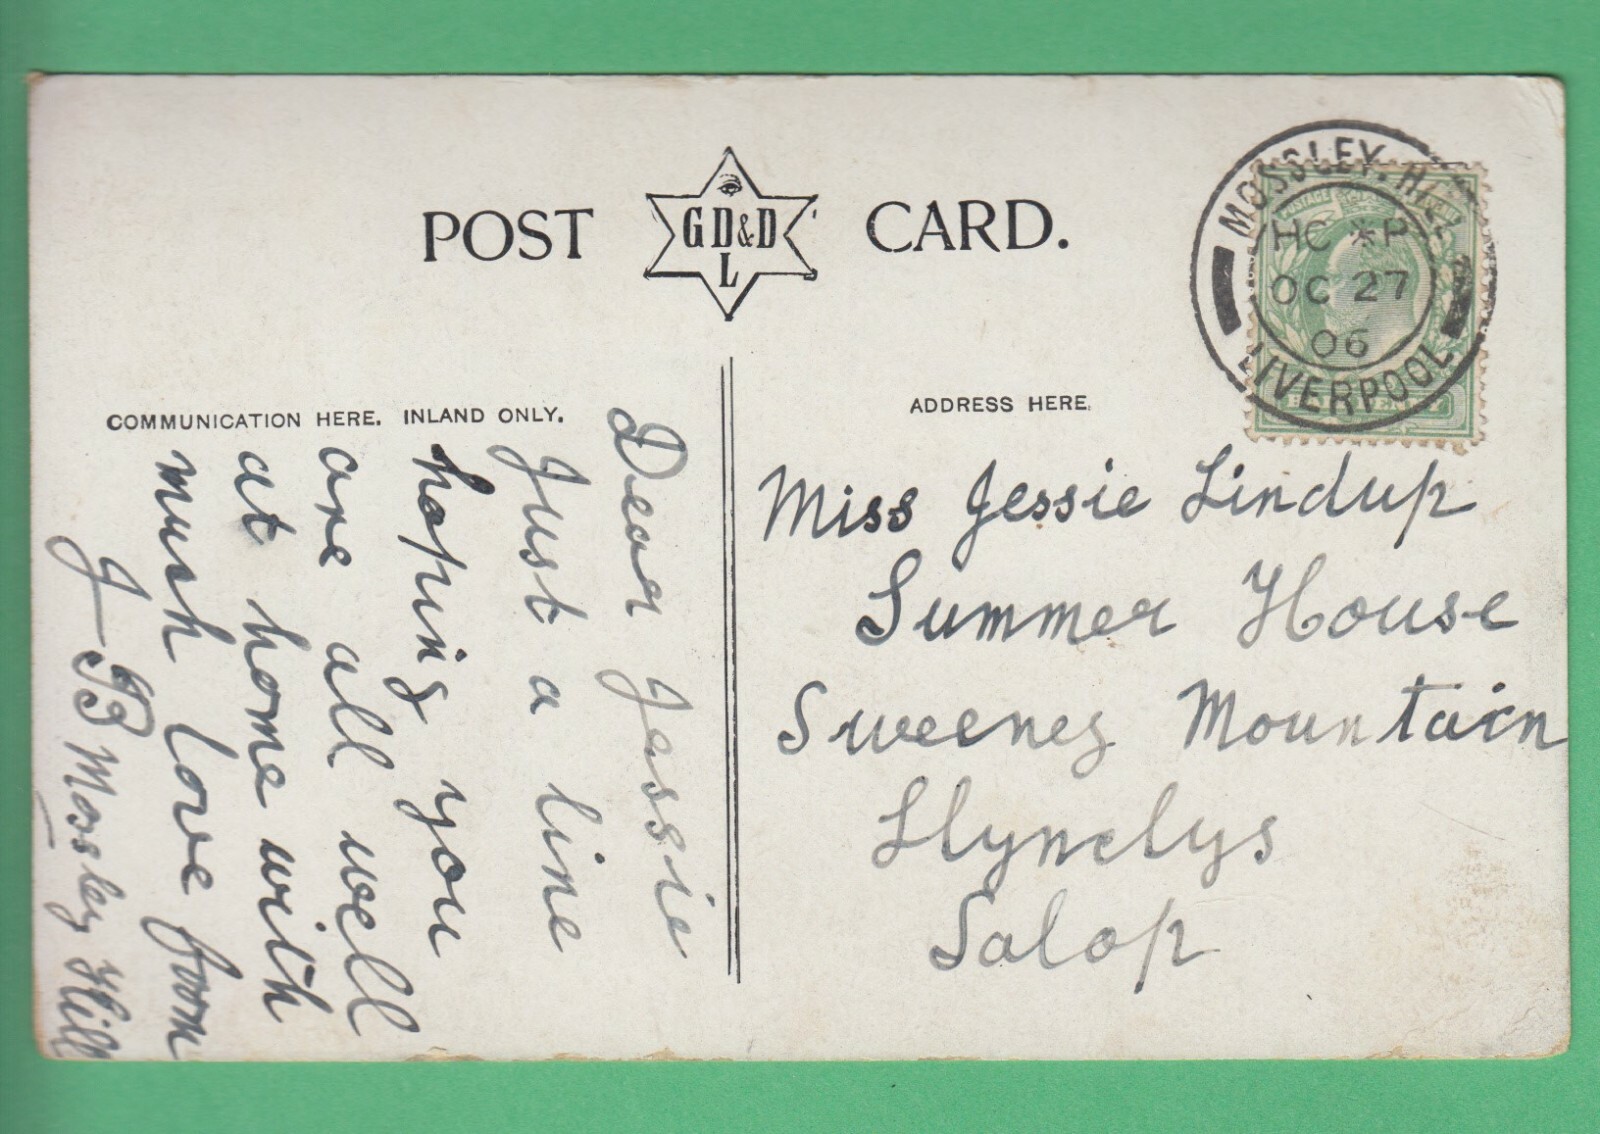 POST CARD.
GD&D
L
COMMUNICATION HERE. INLAND ONLY.
Dear Jessie
Just a line
hoping you
are all well
at home with
much love from
J B Mossley Hill
ADDRESS HERE.
Miss Jessie Lindup
Summer House
Sweeney Mountain
Llynclys
Salop
MOSSLEY. HILL
HC * P
OC 27
06
LIVERPOOL
POSTAGE
HALFPENNY